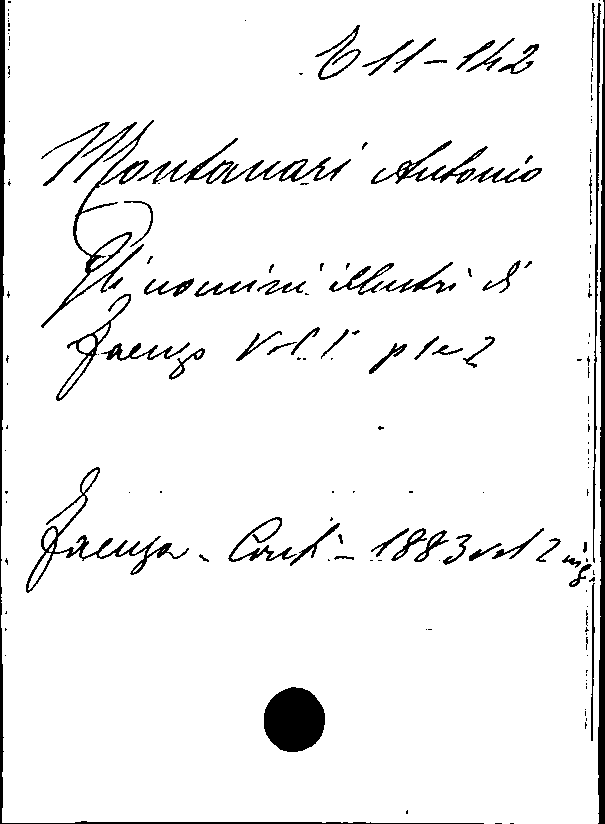 E 11-142
Montanari Antonio
Gli uomini illustri di
Faenza Vol. 1° p 1 e 2
Faenza - Conti - 1883 vol 2